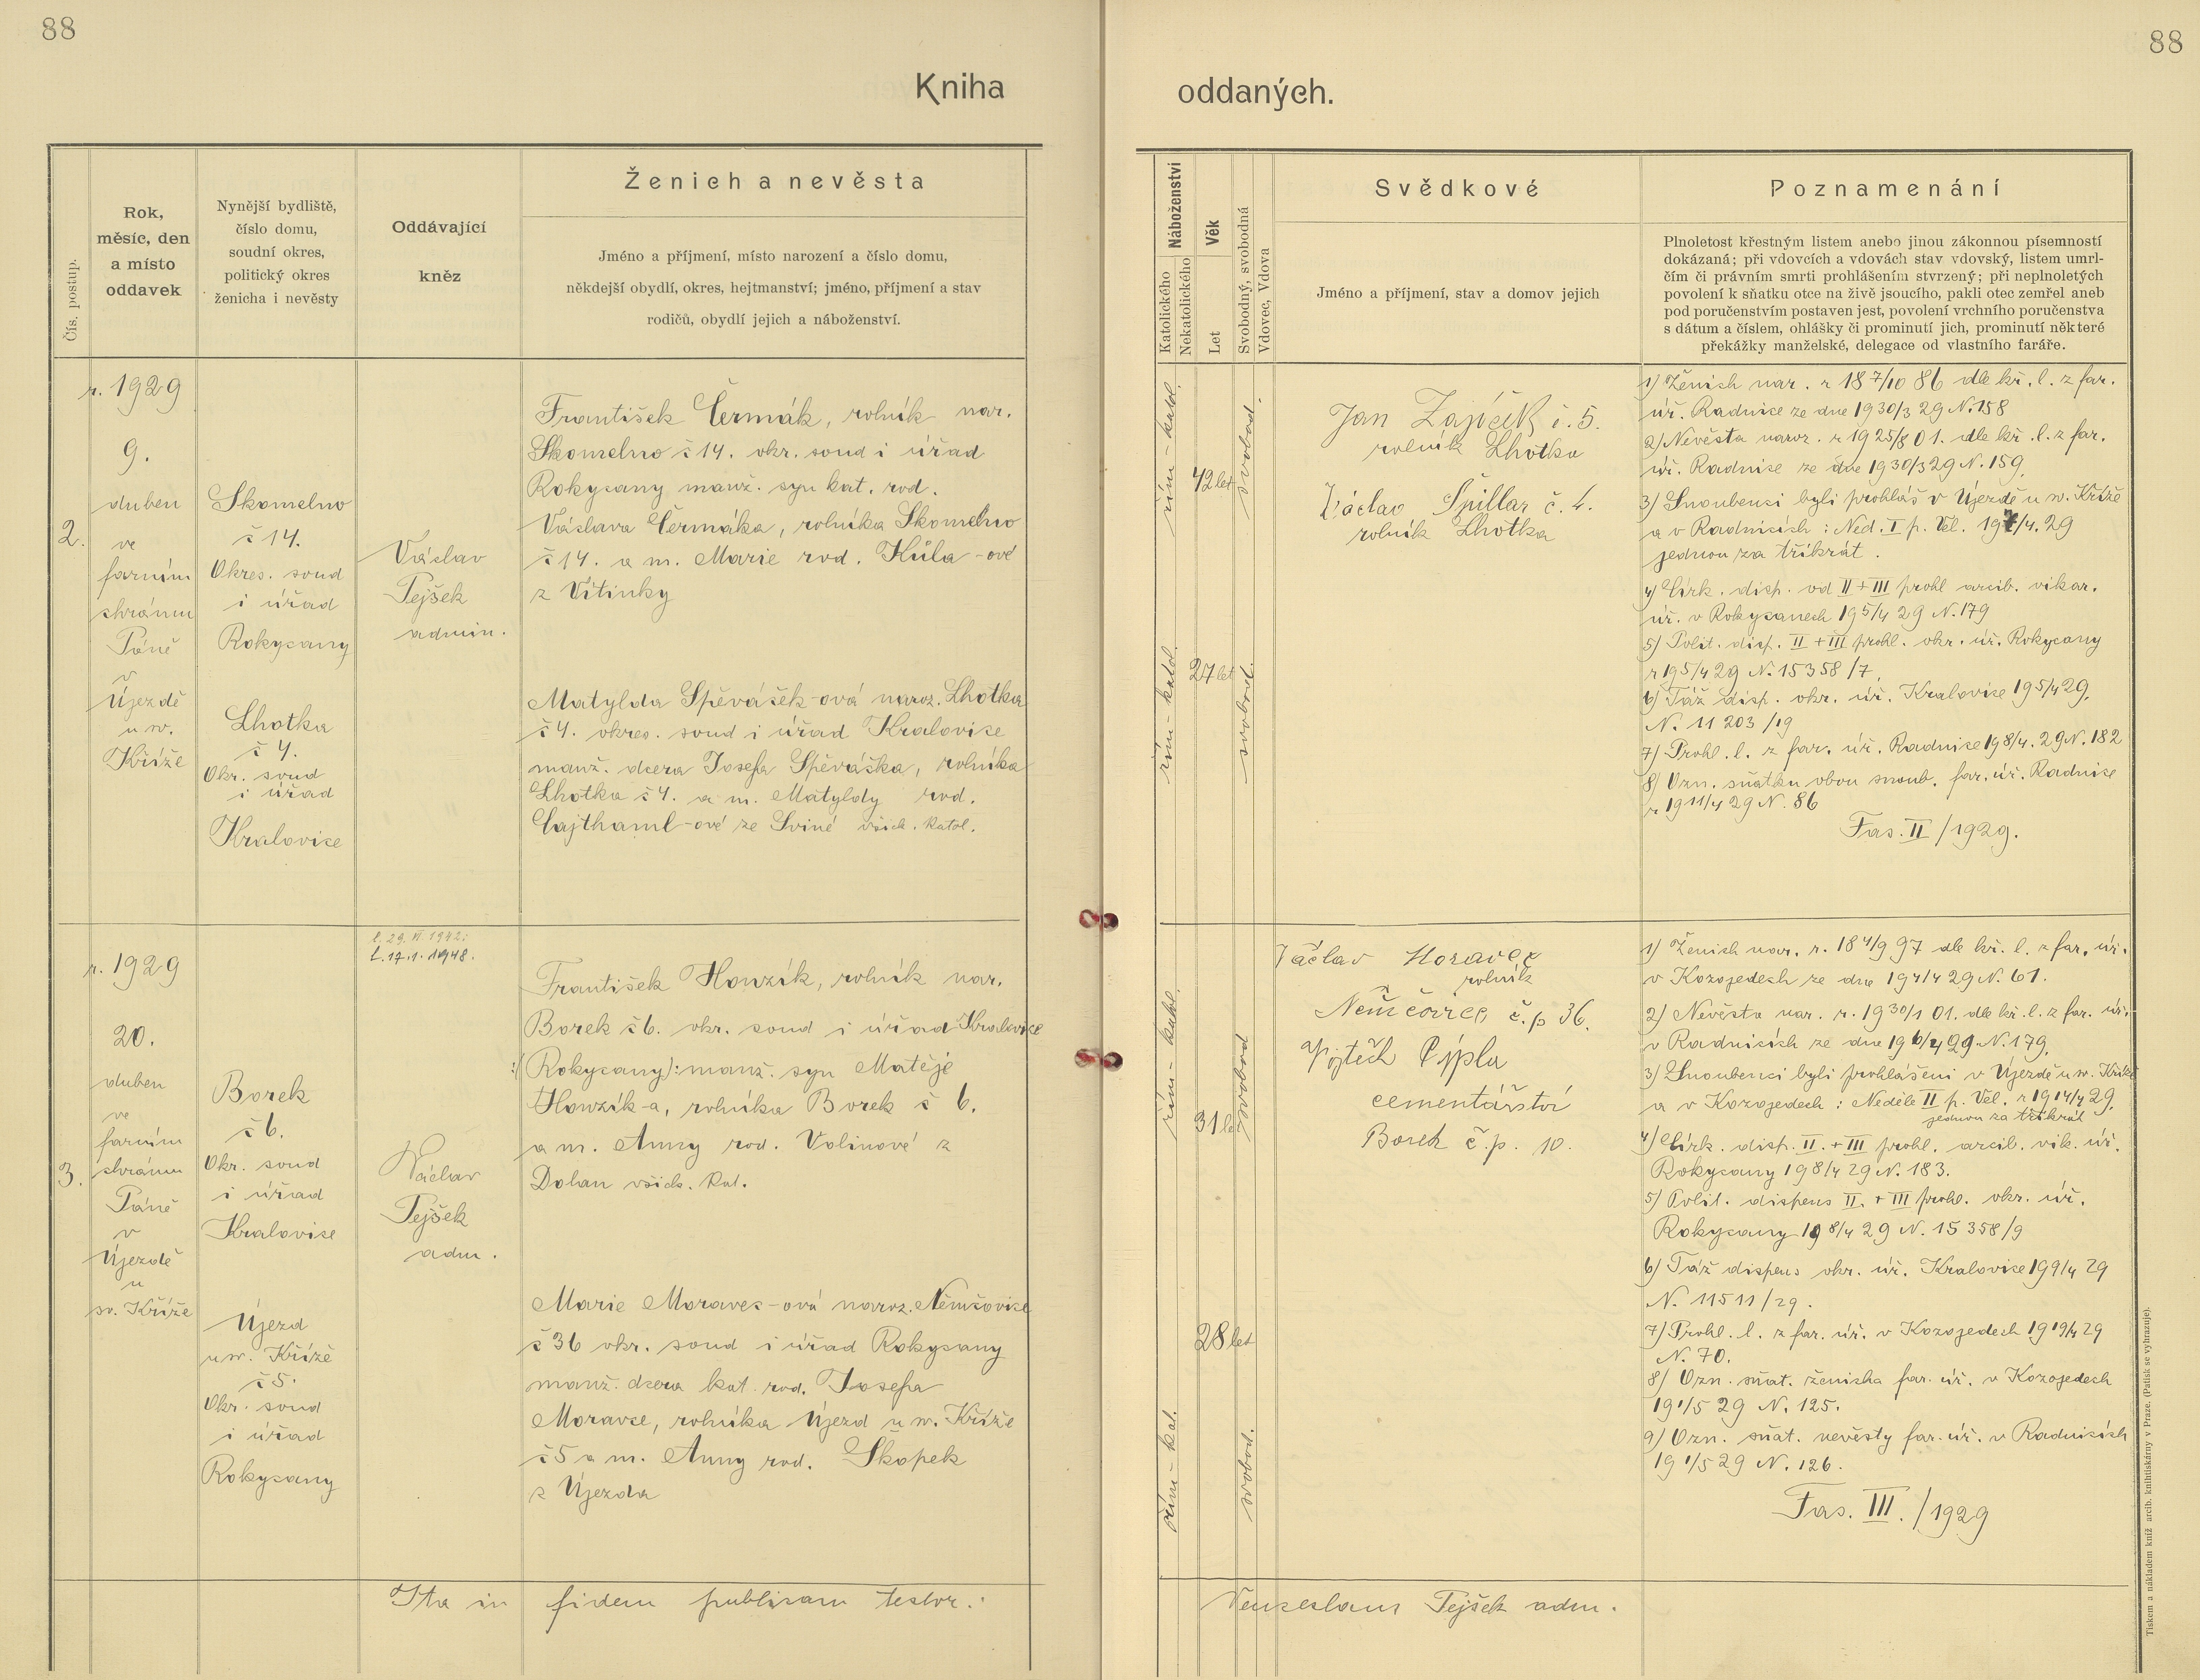 88
88
Kniha
oddaných.
Čís. postup.
Rok,
měsíc, den
a místo
oddavek
Nynější bydliště,
číslo domu,
soudní okres,
politický okres
ženicha i nevěsty
Oddávající
kněz
Ženich a nevěsta
Jméno a příjmení, místo narození a číslo domu,
někdejší obydlí, okres, hejtmanství; jméno, příjmení a stav
rodičů, obydlí jejich a náboženství.
Náboženství
Katolického
Nekatolického
Věk
Let
Svobodný, svobodná
Vdovec, Vdova
Svědkové
Jméno a příjmení, stav a domov jejich
Poznamenání
Plnoletost křestným listem anebo jinou zákonnou písemností
dokázaná; při vdovcích a vdovách stav vdovský, listem umrl-
čím či právním smrti prohlášením stvrzený; při neplnoletých
povolení k sňatku otce na živě jsoucího, pakli otec zemřel aneb
pod poručenstvím postaven jest, povolení vrchního poručenstva
s dátum a číslem, ohlášky či prominutí jich, prominutí některé
překážky manželské, delegace od vlastního faráře.
2.
r. 1929
9.
duben
ve
farním
chrámu
Páně
v
Újezdě
u sv.
Kříže
Skomelno
č 14.
Okres. soud
i úřad
Rokycany
Lhotka
č 4.
Okr. soud
i úřad
Kralovice
Václav
Pejšek
admin.
František Čermák, rolník nar.
Skomelno č 14. okr. soud i úřad
Rokycany manž. syn kat. rod.
Václava Čermáka, rolníka Skomelno
č 14. a m. Marie rod. Kůla-ové
z Vitinky
Matylda Spěváček-ová naroz. Lhotka
č 4. okres. soud i úřad Kralovice
manž. dcera Josefa Spěváčka, rolníka
Lhotka č 4. a m. Matyldy rod.
Cajthaml-ové ze Sviné všich. katol.
řím-katol.
42 let
svobod.
řím-katol.
27 let
svobod.
Jan Zajíček č. 5.
rolník Lhotka
Václav Špillar č. 4.
rolník Lhotka
1) Ženich nar. r 18 7/10 86 dle kř. l. z far.
úř. Radnice ze dne 19 30/3 29 N. 158
2) Nevěsta naroz. r 19 25/8 01. dle kř. l. z far.
úř. Radnice ze dne 19 30/3 29 N. 159.
3) Snoubenci byli prohláš v Újezdě u sv. Kříže
a v Radnicích: Ned. I p. Vel. 19 7/4. 29
jednou za třikrát.
4) Církr. disp. od II + III prohl arcib. vikar.
úř. v Rokycanech 19 5/4 29 N. 179
5) Polit. disp. II + III prohl. okr. úř. Rokycany
r 19 5/4 29 N. 15358/7.
6) Táž disp. okr. úř. Kralovice 19 5/4 29.
N. 11203/19
7) Prohl. l. z far. úř. Radnice 19 8/4. 29 N. 182
8) Ozn. sňatku obou snoub. far. úř. Radnice
r 19 11/4 29 N. 86
Fas. II / 1929.
3.
r. 1929
20.
duben
ve
farním
chrámu
Páně
v
Újezdě
u
sv. Kříže
Borek
č 6.
Okr. soud
i úřad
Kralovice
Újezd
u sv. Kříže
č 5.
Okr. soud
i úřad
Rokycany
l. 29. VI. 1942.
L. 17.1. 1948.
Václav
Pejšek
adm.
František Honzík, rolník nar.
Borek č 6. okr. soud i úřad Kralovice
:(Rokycany): manž. syn Matěje
Honzík-a, rolníka Borek č 6.
a m. Anny rod. Volinové z
Dolan všich. kat.
Marie Moravec-ová naroz. Němčovice
č 36 okr. soud i úřad Rokycany
manž. dcera kat. rod. Josefa
Moravce, rolníka Újezd u sv. Kříže
č 5 a m. Anny rod. Skopek
z Újezda
řím-katol.
31 let
svobod
řím-kat.
28 let
svobod.
Václav Moravec
rolník
Němčovice, č. p 36.
Vojtěch Cýpla
cementářství
Borek č. p. 10.
1) Ženich nar. r. 18 4/9 97 dle kř. l. z far. úř.
v Kozojedech ze dne 19 4/4 29 N. 61.
2) Nevěsta nar. r. 19 30/1 01. dle kř. l. z far. úř.
v Radnicích ze dne 19 6/4 29 N. 179.
3) Snoubenci byli prohlášeni v Újezdě u sv. Kříže
a v Kozojedech: Neděle II p. Vel. r 19 14/4 29.
jednou za třikrát
4) Církr. disp. II. + III prohl. arcib. vik. úř.
Rokycany 19 8/4 29 N. 183.
5) Polit. dispens II. + III prohl. okr. úř.
Rokycany 19 8/4 29 N. 15358/9
6) Táž dispens okr. úř. Kralovice 19 9/4 29
N. 11511/29.
7) Prohl. l. z far. úř. v Kozojedech 19 19/4 29
N. 70.
8) Ozn. sňat. ženicha far. úř. v Kozojedech
19 1/5 29 N. 125.
9) Ozn. sňat. nevěsty far. úř. v Radnicích
19 1/5 29 N. 126.
Fas. III. / 1929
Ita in fidem publicam testor:
Venceslaus Pejšek adm.
Tiskem a nákladem kníž. arcib. knihtiskárny v Praze. (Patisk se vyhrazuje).